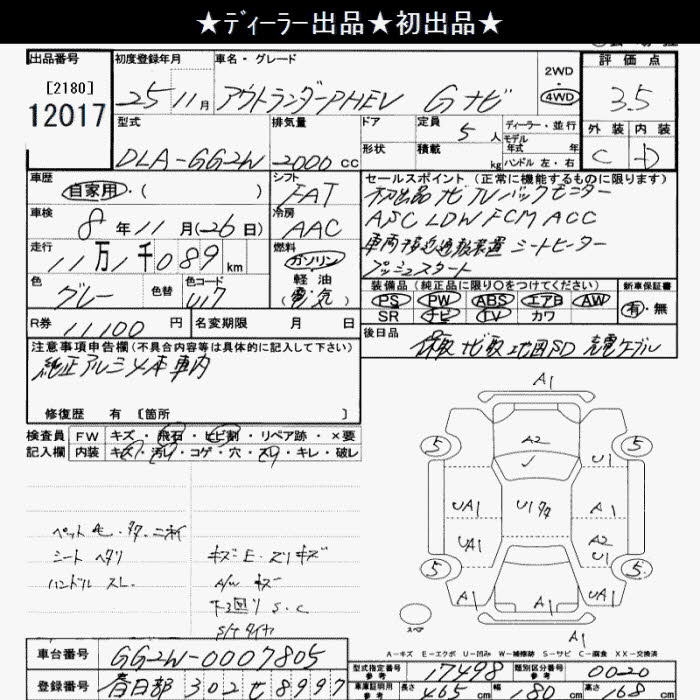 ★ディーラー出品★初出品★
出品番号 初度登録年月 車名・グレード 評価点
[2180] 25 11月 アウトランダーPHEV Gナビ 2WD 4WD 3.5
12017
型式 排気量 ドア 定員 5人 ディーラー・並行 外装 内装
形状 積載 kg モデル年式 年 C D
DLA-GG2W 2000 cc ハンドル 左・右
車歴 シフト セールスポイント(正常に機能するものに限ります)
自家用・( ) FAT 初出品 ナビ TV バックモニター
車検 冷房 ASC LDW FCM ACC
8年11月(26日) AAC 車両接近通報装置 シートヒーター
走行 燃料 プッシュスタート
11万1千089km ガソリン
軽油
(電気)
色 色替 色コード 装備品(純正品に限り○をつけてください) 新車保証書
グレー U17 PS PW ABS エアB AW 有・無
SR ナビ TV カワ
R券 11100円 名変期限 月 日
後日品 保取 ナビ取 地図SD 充電ケーブル
注意事項申告欄(不具合内容等は具体的に記入して下さい)
純正アルミ4本車内
修復歴 有 [箇所 ]
検査員 FW キズ・飛石・ヒビ割・リペア跡・×要
記入欄 内装 キズ・汚レ・コゲ・穴・スリ・キレ・破レ
A1
5 A2 5
U1
UA1 U1 A1
UA1 A2
U1
5 5
A1 UA1
A1
ペット毛・タタ・ニオイ
シート ヘタリ キズE・ズリキズ
ハンドル スレ A/W キズ
下回り S.C
S/Tタイヤ
スペア
A-キズ E-エクボ U-凹み W-補修跡 S-サビ C-腐食 XX-交換済
車台番号 GG2W-0007805
型式指定番号 参考 17498 類別区分番号 参考 0020
登録番号 春日部 302 せ 8997
車庫証明用 参考 長さ 465 cm 幅 180 cm 高さ 168 cm